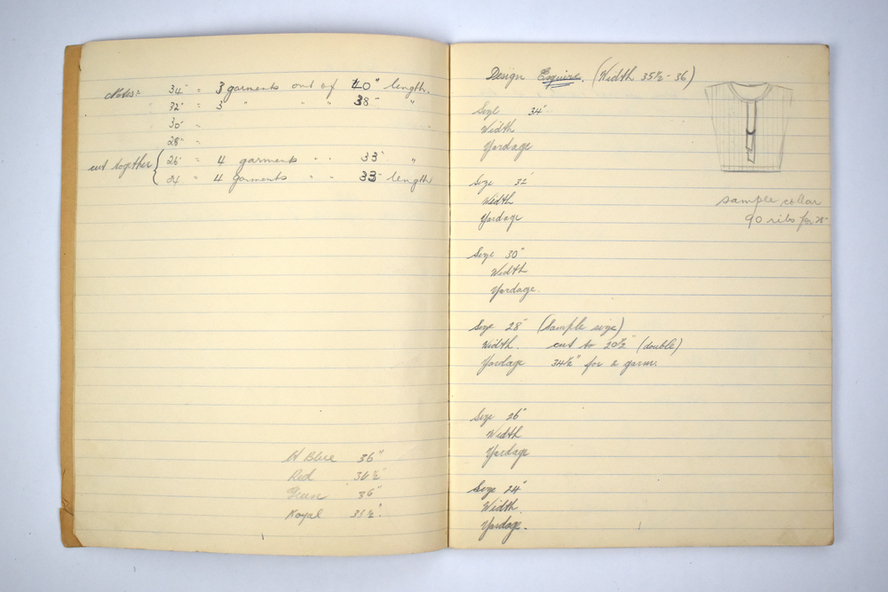 Notes:- 34" = 3 garments out of 40" length.
" 32" = 3 " " " 38" "
30" =
28" =
cut together { 26" = 4 garments " " 33" "
24 = 4 garments " " 33" length
Blue 36"
Red 36½"
Green 36"
Royal 35½"
Design Esquire. (Width 35½ - 36)
Size 34"
Width
Yardage
Size 32"
Width
Yardage
sample collar
90 ribs for 28"
Size 30"
Width
Yardage
Size 28" (Sample size)
Width. cut to 20½" (double)
Yardage 34½" for 2 garm.
Size 26"
Width
Yardage
Size 24"
Width.
Yardage.